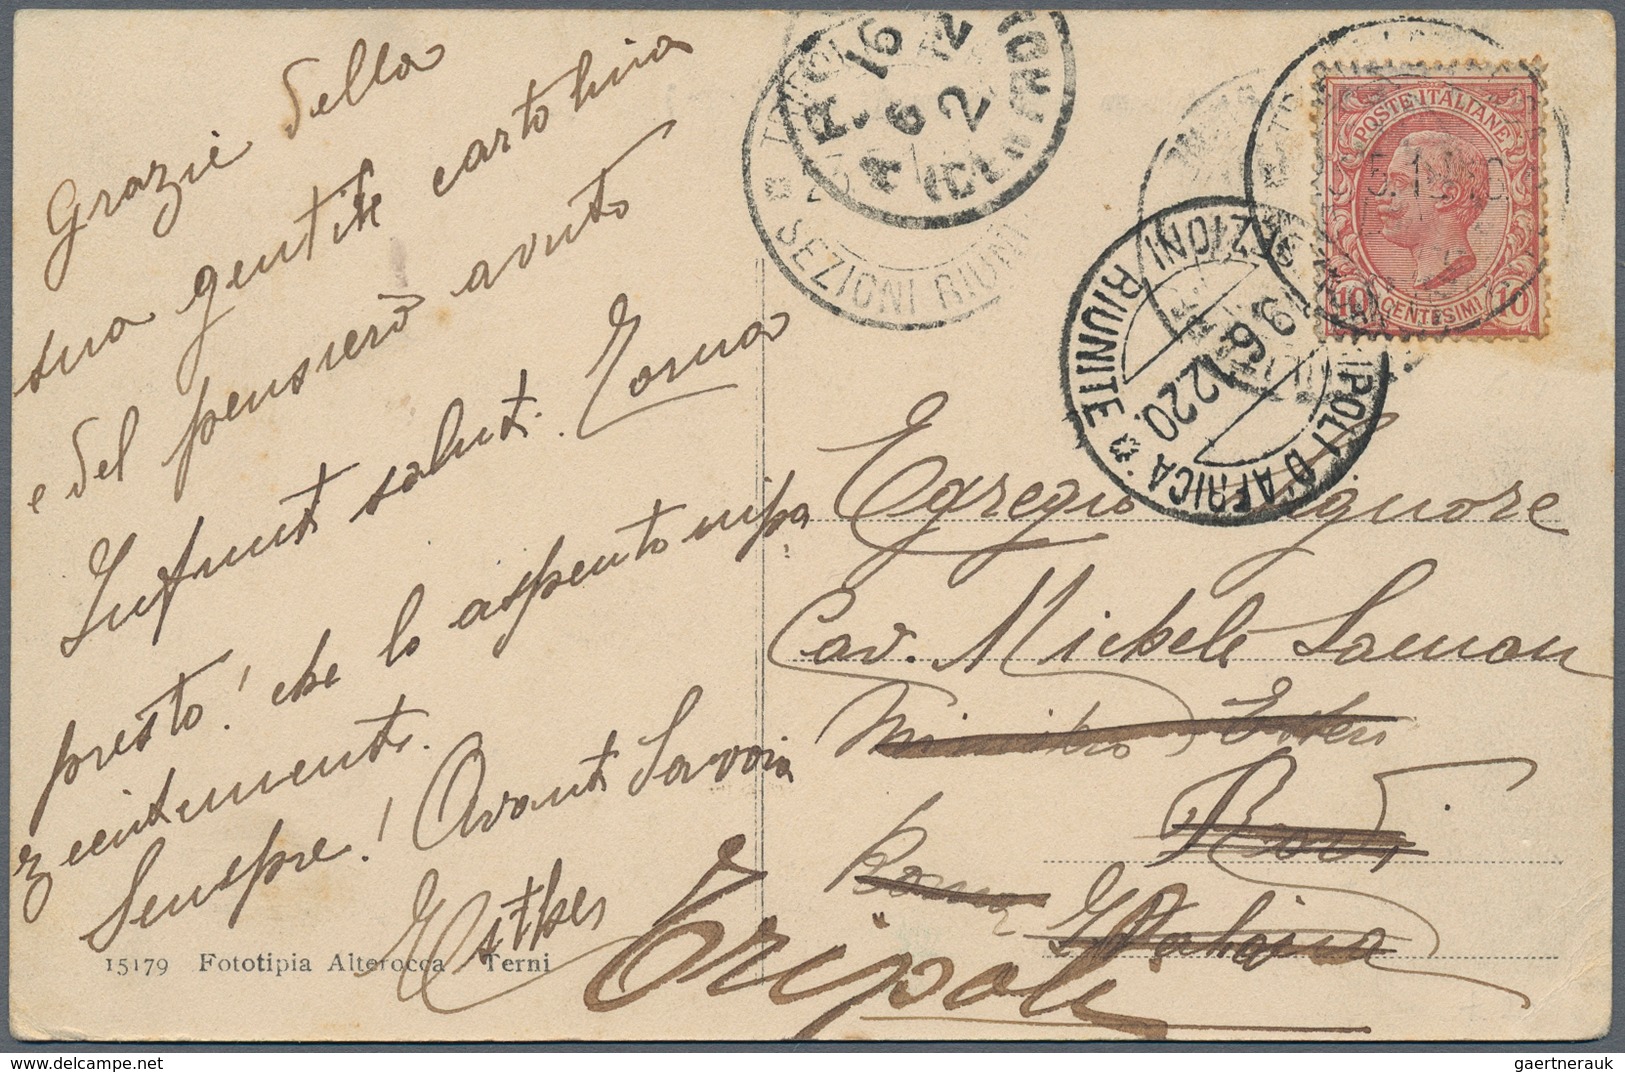 Grazie della
sua gentile cartolina
e del pensiero avuto
Infiniti saluti. Torna
presto! che lo aspento
Sempre! Avanti Savoia
Esther
15179 Fototipia Alterocca Terni
SEZIONI RIUNI
AR. 16
6 12
2
POSTE ITALIANE
10 CENTESIMI 10
TRIPOLI D'AFRICA
SEZIONI RIUNITE
9 6 12 20
Egregio Signore
Cav. Michele
Ministro Esteri
Rodi
Roma
Italia
Tripoli
gaertnerauk